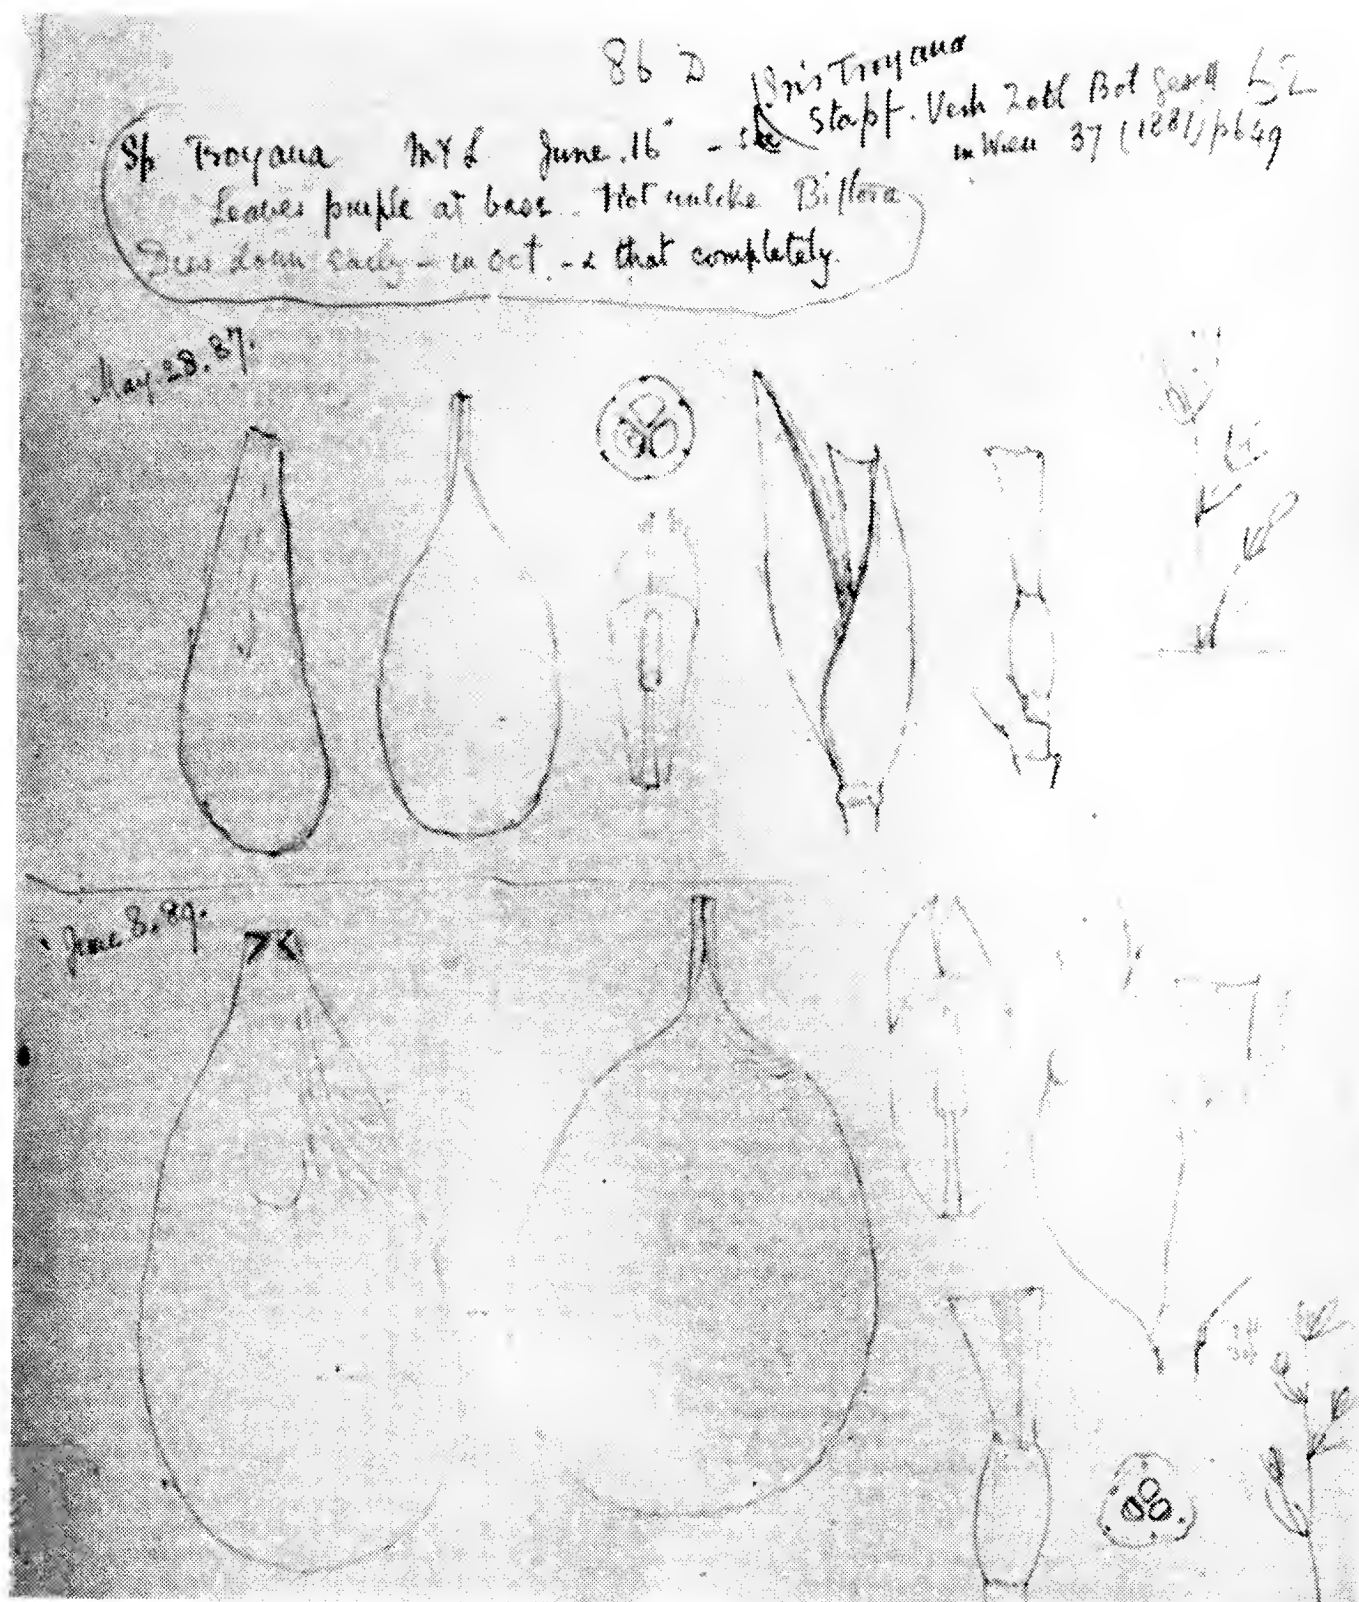 86 D
Iris Troyana
Stapf. Verh Zool Bot Gesell
in Wien 37 (1887) p649
52
Sp Troyana June.16 - see
Leaves purple at base. Not unlike Biflora
Dies down early - in Oct. - & that completely.
May.28.87.
June.8.89.